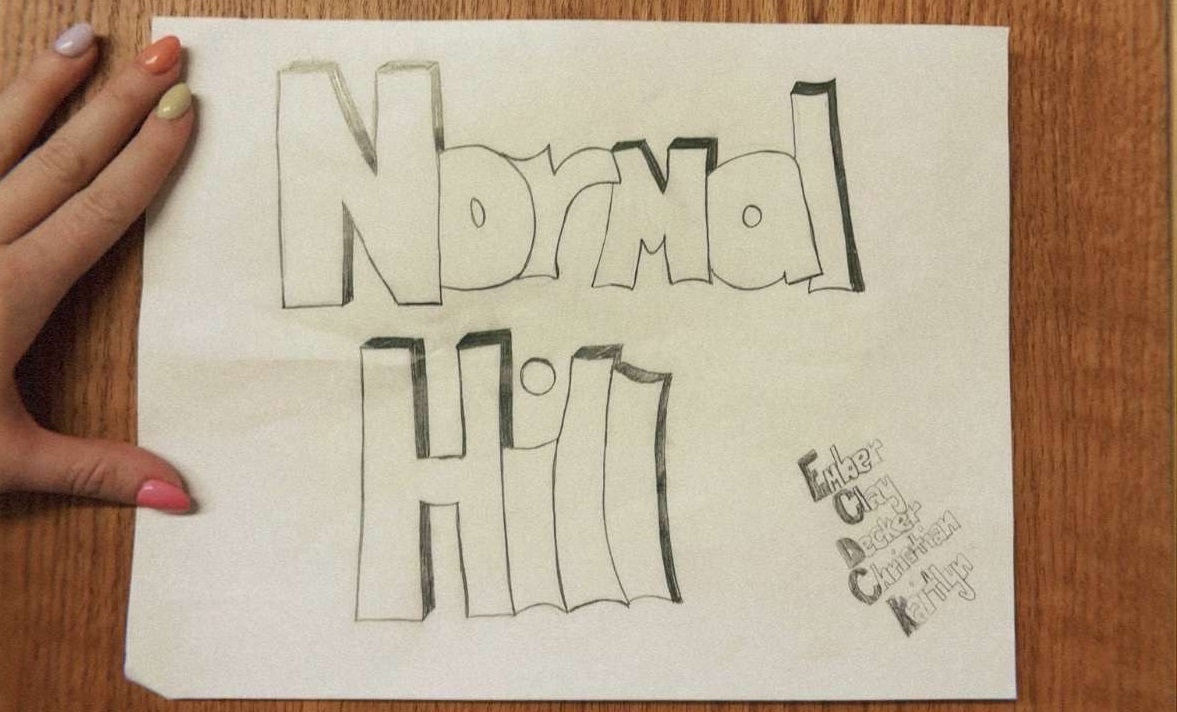 Normal
Hill
Ember
Clay
Decker
Christian
Kaitlyn